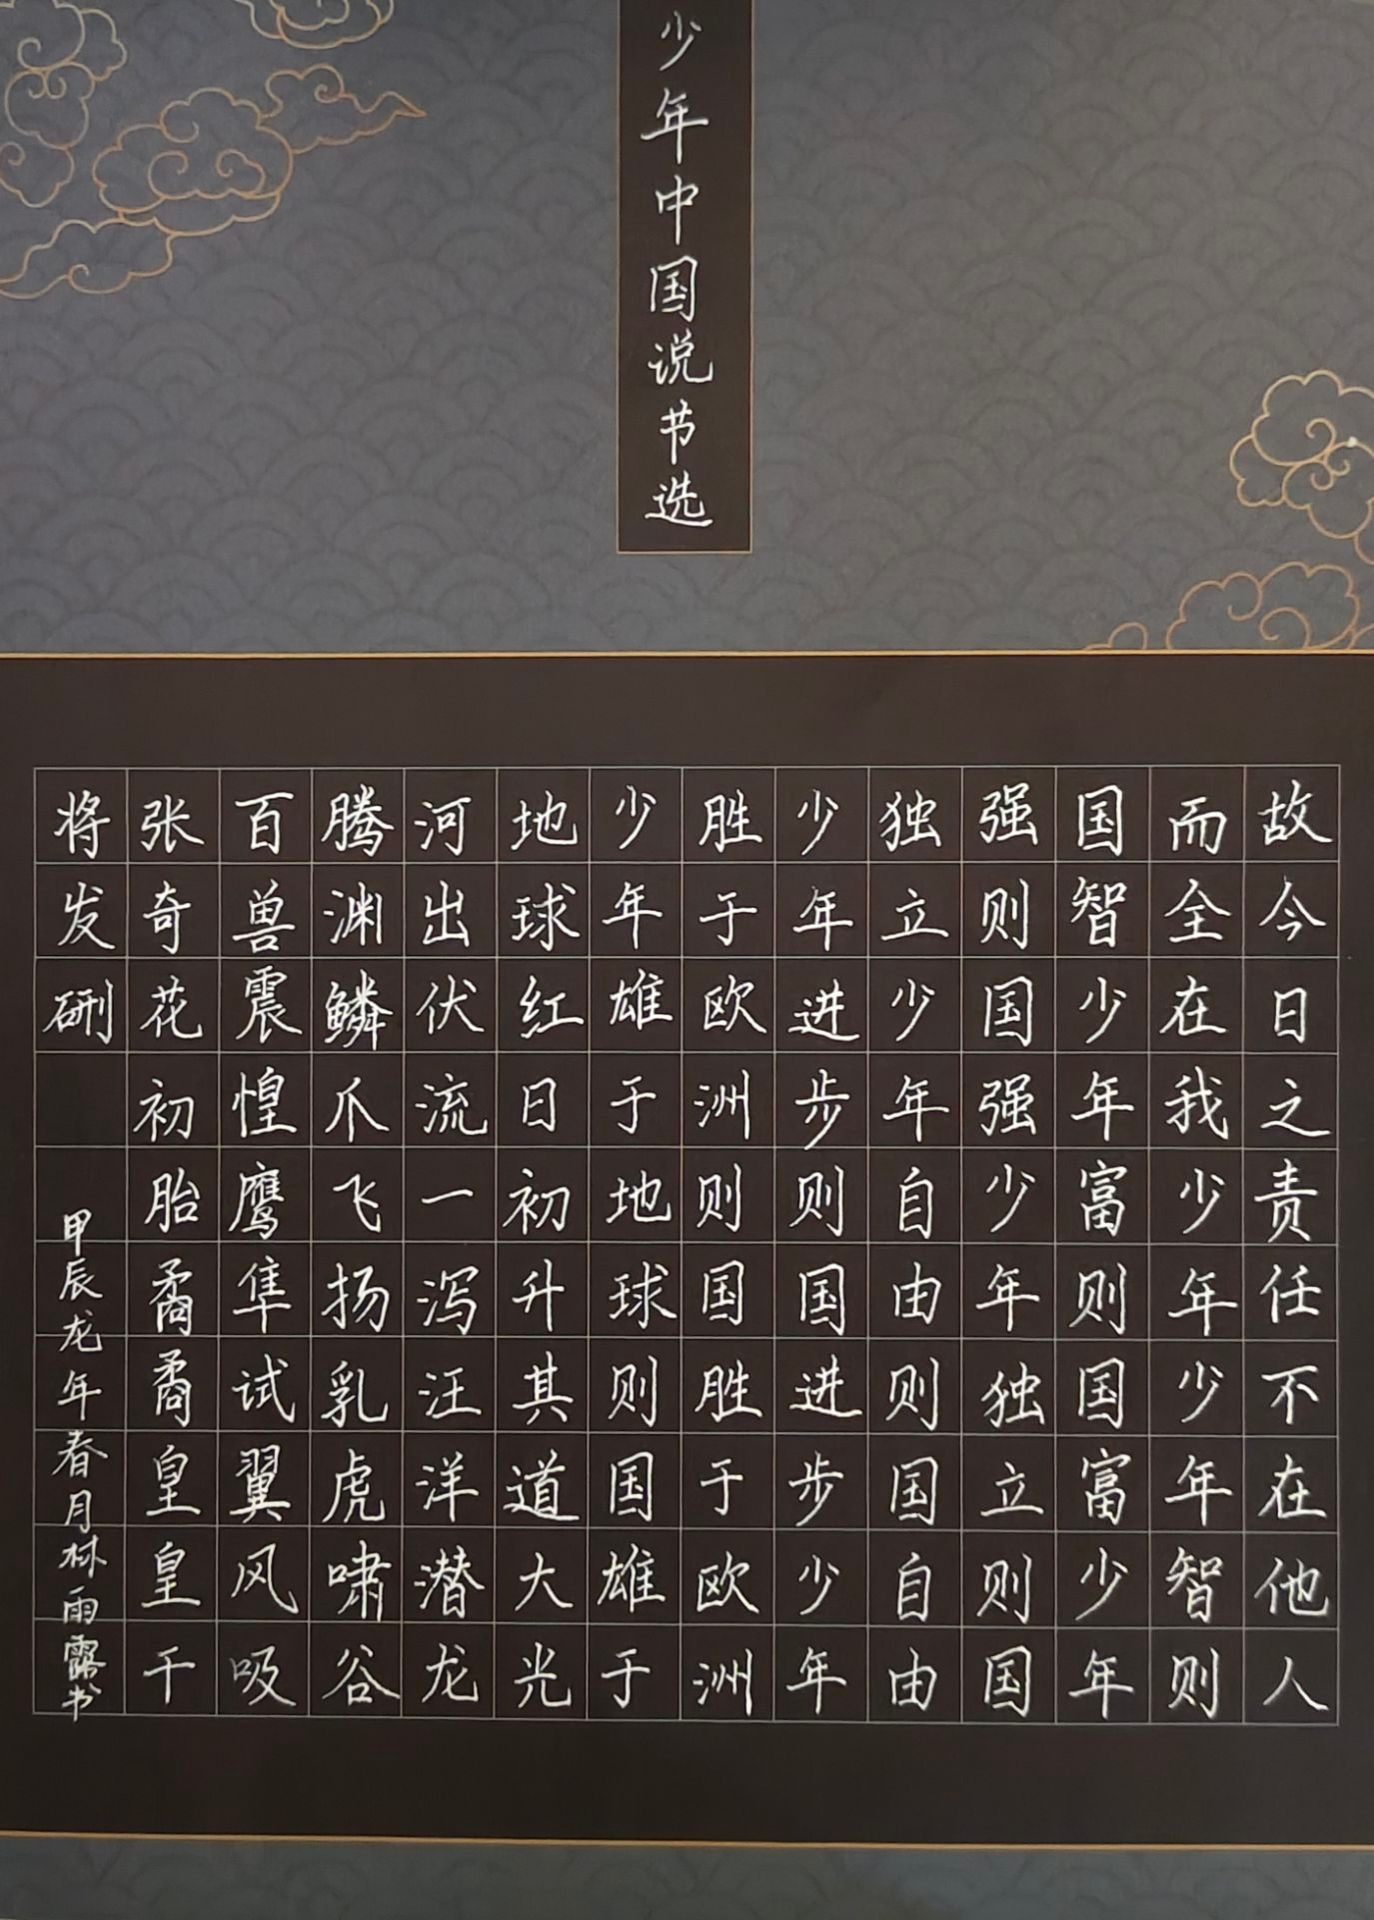 少年中国说节选
故今日之责任不在他人
而全在我少年少年智则
国智少年富则国富少年
强则国强少年独立则国
独立少年自由则国自由
少年进步则国进步少年
胜于欧洲则国胜于欧洲
少年雄于地球则国雄于
地球红日初升其道大光
河出伏流一泻汪洋潜龙
腾渊鳞爪飞扬乳虎啸谷
百兽震惶鹰隼试翼风吸
张奇花初胎矞矞皇皇干
将发硎
甲辰龙年春月林雨露书